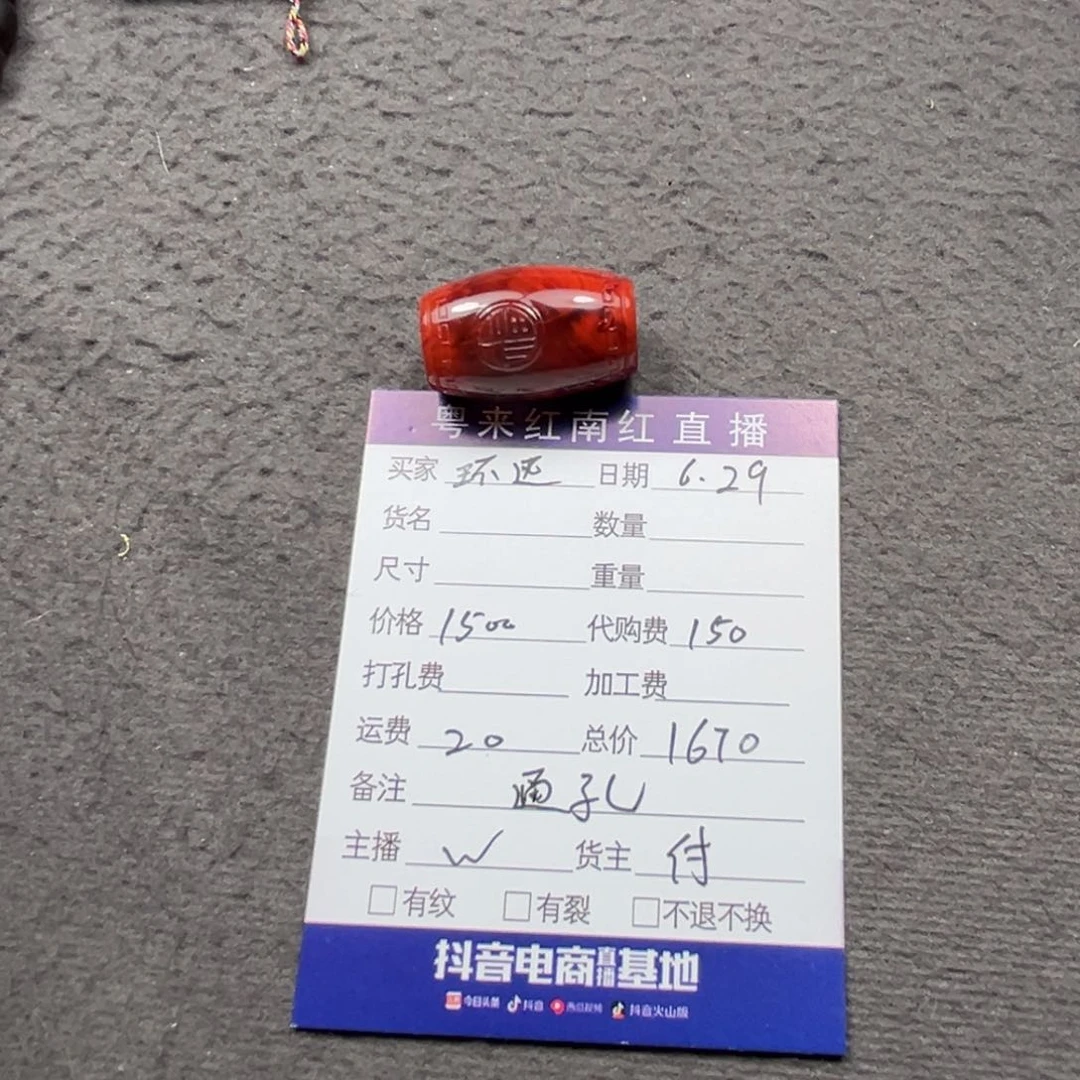 福
粤来红南红直播
买家 环迅 日期 6.29
货名 数量
尺寸 重量
价格 1500 代购费 150
打孔费 加工费
运费 20 总价 1670
备注 通孔
主播 W 货主 付
□有纹 □有裂 □不退不换
抖音电商直播基地
今日头条 抖音 西瓜视频 抖音火山版